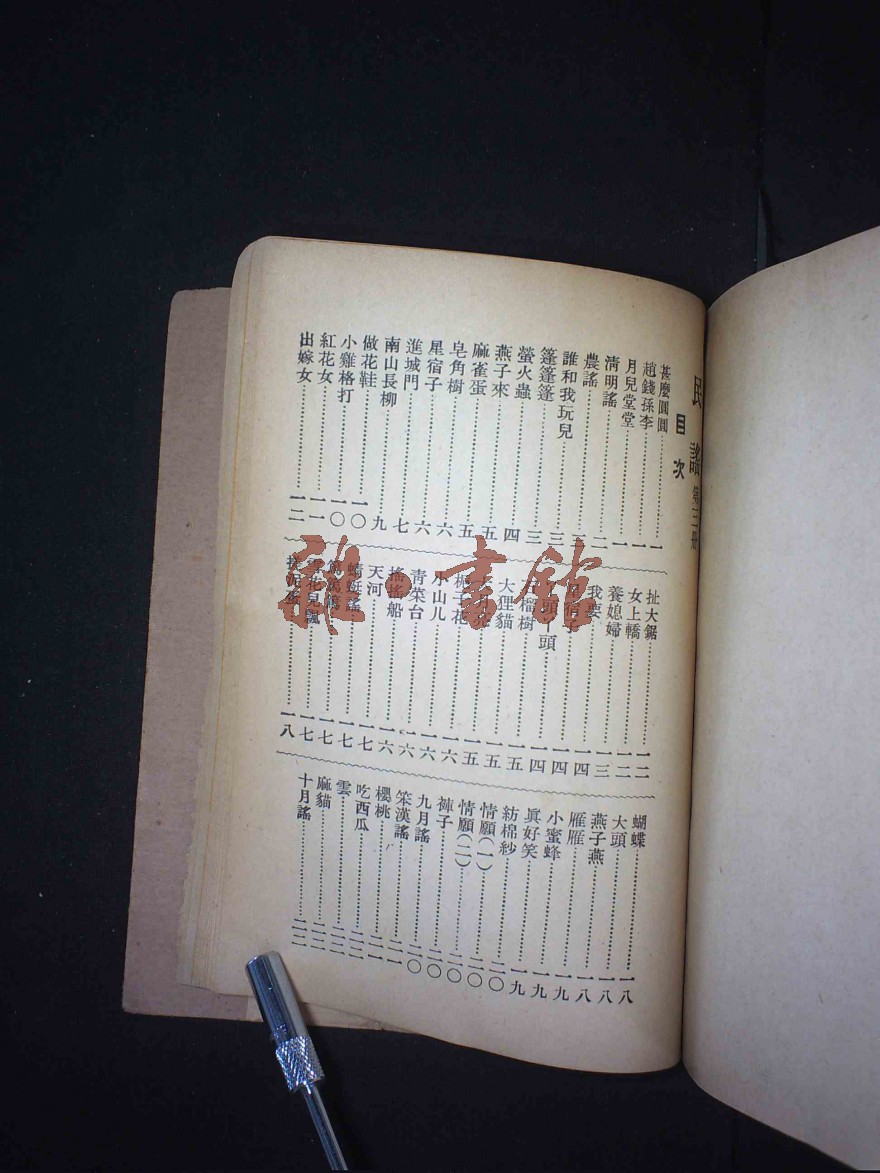 民謠 第三册
目次
甚麼圓圓⋯⋯一
趙錢孫李⋯⋯一
月兒堂堂⋯⋯一
清明謠⋯⋯二
農謠⋯⋯三
誰和我玩兒⋯⋯三
篷篷篷⋯⋯三
螢火蟲⋯⋯四
燕子來⋯⋯五
麻雀蛋⋯⋯五
皂角樹⋯⋯六
星宿子⋯⋯六
進城門⋯⋯七
南山長柳⋯⋯九
做花鞋⋯⋯一〇
小雞格打⋯⋯一〇
紅花女⋯⋯一一
出嫁女⋯⋯一二
扯大鋸⋯⋯一二
女上轎⋯⋯一二
養媳婦⋯⋯一三
我要⋯⋯一四
一四
頭⋯⋯一四
樹⋯⋯一五
大狸貓⋯⋯一五
一五
梔子花⋯⋯一六
小山儿⋯⋯一六
青菜台⋯⋯一六
搖搖船⋯⋯一六
天河⋯⋯一七
蜻蜓謠⋯⋯一七
一七
雪花兒飄⋯⋯一七
搓泥蛋⋯⋯一八
蝴蝶⋯⋯一八
大頭⋯⋯一八
燕子燕⋯⋯一八
雁雁⋯⋯一九
小蜜蜂⋯⋯一九
眞好笑⋯⋯一九
紡棉紗⋯⋯二〇
情願(一)⋯⋯二〇
情願(二)⋯⋯二〇
褲子⋯⋯二〇
九月謠⋯⋯二〇
笨漢謠⋯⋯二一
櫻桃⋯⋯二一
吃西瓜⋯⋯二二
雲⋯⋯二二
麻貓⋯⋯二二
十月謠⋯⋯二二
雅·書館